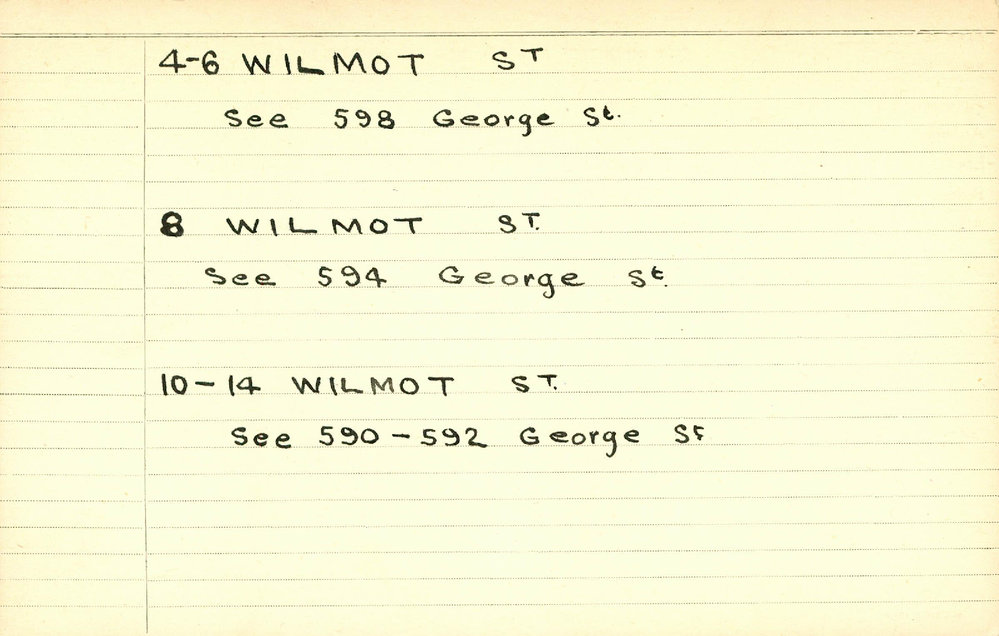 4-6 WILMOT ST
See 598 George St.
8 WILMOT ST.
See 594 George St.
10-14 WILMOT ST.
See 590-592 George St